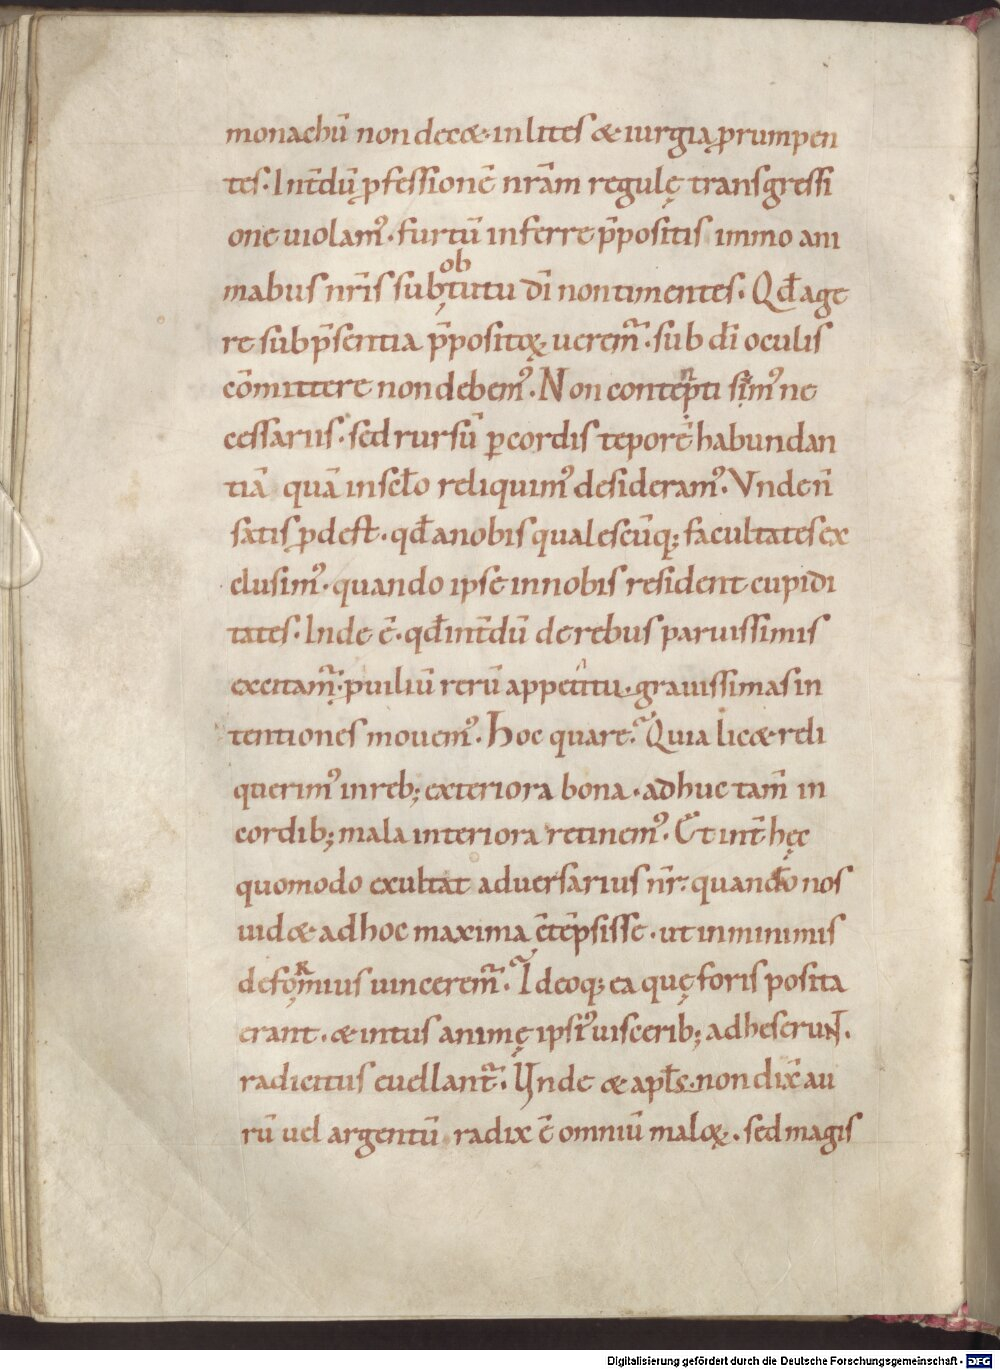 monachū non decet· in lites & iurgia ꝓrumpen
tes· Int̄dū ꝓfessionē nr̄am regulę transgressi
one uiolamꝰ· furtū inferre p̄positis immo ani
mabus nr̄is sub ob tutu dī non timentes· Qđ age
re sub p̄sentia p̄positoꝝ uerem̄· sub dī oculis
cōmittere non debemꝰ· Non contēpti simꝰ ne
cessariis· sed rursū ꝑ cordis teporē habundan
tiā quā in sc̄lo reliquimꝰ desideramꝰ· Vnde n̄
satis ꝓdest· qđ a nobis qualescūq; facultates ex
clusimꝰ· quando ipse in nobis resident cupidi
tates· Inde ē· qđ int̄dū de rebus paruissimis
excitam̄· ꝑ uiliū rerū appetitū· grauissimas in
tentiones mouemꝰ· Hoc quare? Quia lic& reli
querimꝰ in reb; exteriora bona· adhuc tam̄ in
cordib; mala interiora retinemꝰ· Et int̄ hęc
quomodo exultat aduersarius nr̄· quando nos
uid&· ad hoc maxima c̄tēpsisse· ut in minimis
deformius uincerem̄? Ideoq; ea quę foris posita
erant· & intus animę ipsiꝰ uiscerib; adheserunt·
radicitus euellant̄· Vnde & apl̄s· non dix̄ au
rū uel argentū radix ē omniū maloꝝ· sed magis
Digitalisierung gefördert durch die Deutsche Forschungsgemeinschaft - DFG